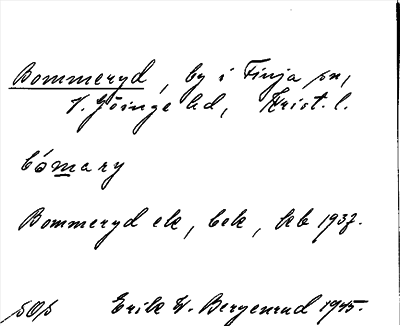 Bommeryd, by i Finja sn,
V. Göinge hd, Krist. l.
bómary
Bommeryd ek, bek, kb 1937.
Erik W. Bergenrud 1945.